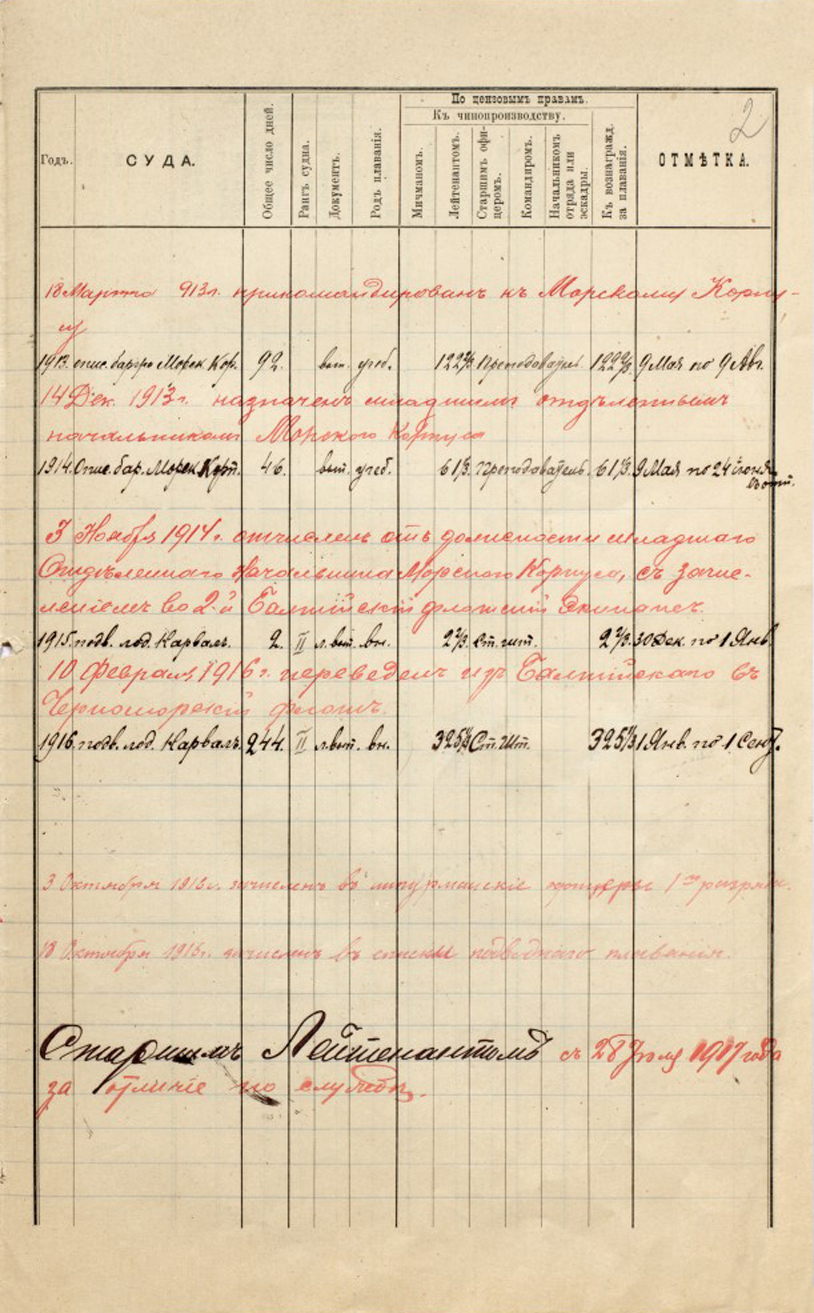 2
По цензовымъ правамъ.
Къ чинопроизводству.
Годъ. СУДА. Общее число дней. Рангъ судна. Документъ. Родъ плаванія. Мичманомъ. Лейтенантомъ. Старшимъ офицеромъ. Командиромъ. Начальникомъ отряда или эскадры. Къ вознагражд. за плаванія. ОТМѢТКА.
18 Марта 913 г. прикомандированъ къ Морскому Корпу-
су
1913. Морск. Кор. 92. вып. учеб. 122⅔ Преподаватель 122⅔ 9 Мая по 9 Авг.
14 Дек. 1913 г. назначенъ младшимъ отдѣленнымъ
начальникомъ Морского Корпуса
1914. Опис. бар. Морск. Корп. 46. вып. учеб. 61⅓ Преподаватель. 61⅓ 9 Мая по 24 іюня
3 Ноября 1914 г. отчисленъ отъ должности младшаго
Отдѣленнаго Начальника Морского Корпуса, съ зачис-
леніемъ во 2-й Балтійскій флотскій Экипажъ.
1915. подв. лод. Нарвалъ. 2. II л. вып. вн. 2⅔ Ст. шт. 2⅔ 30 Дек. по 1 Янв.
10 Февраля 1916 г. переведенъ изъ Балтійскаго въ
Черноморскій флотъ.
1916. подв. лод. Нарвалъ. 244. II л. вып. вн. 325⅓ Ст. Шт. 325⅓ 1 Янв. по 1 Сент.
3 Октября 1915 г. зачисленъ въ штурманскіе офицеры 1го разряда.
18 Октября 1915 г. зачисленъ въ списки подводнаго плаванія.
Старшимъ Лейтенантомъ съ 28 Іюля 1917 года
за отличіе по службѣ.